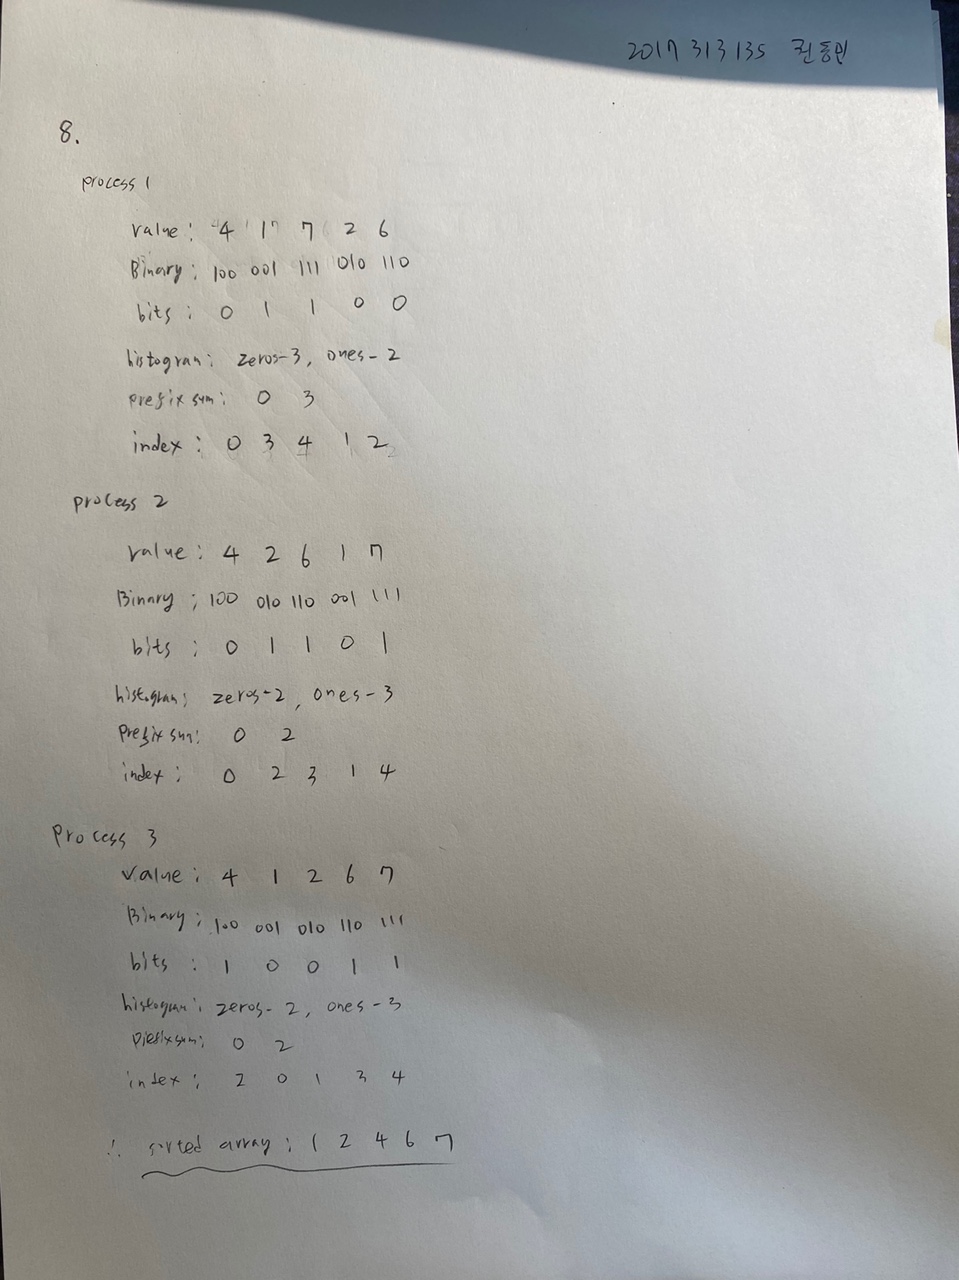 2017313135 권동민
8.
process 1
value : 4 1 7 2 6
Binary : 100 001 111 010 110
bits : 0 1 1 0 0
histogram : zeros-3, ones-2
prefix sum : 0 3
index : 0 3 4 1 2
process 2
value : 4 2 6 1 7
Binary ; 100 010 110 001 111
bits ; 0 1 1 0 1
histogram ; zeros-2, ones-3
prefix sum : 0 2
index : 0 2 3 1 4
Process 3
value : 4 1 2 6 7
Binary ; 100 001 010 110 111
bits : 1 0 0 1 1
histogram : zeros-2, ones-3
prefix sum ; 0 2
index ; 2 0 1 3 4
∴ sorted array : 1 2 4 6 7